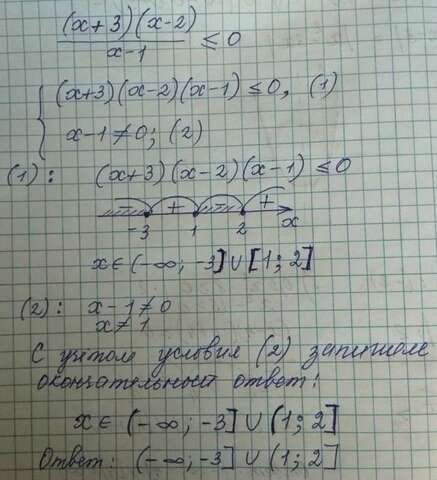 (x+3)(x-2)
x-1
≤ 0
(x+3)(x-2)(x-1) ≤ 0, (1)
x-1 ≠ 0; (2)
(1): (x+3)(x-2)(x-1) ≤ 0
- + - +
-3 1 2 x
x ∈ (-∞; -3] ∪ [1; 2]
(2): x-1 ≠ 0
x ≠ 1
С учётом условия (2) запишем
окончательный ответ:
x ∈ (-∞; -3] ∪ (1; 2]
Ответ: (-∞; -3] ∪ (1; 2]